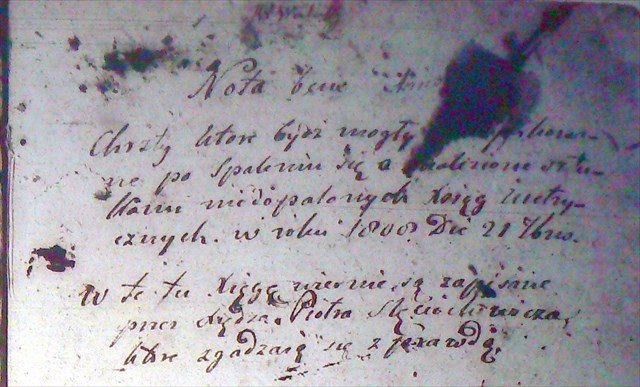 Nota bene
Chrzty ktore bydź mogły
ne po spaleniu się a znalezione sztu-
kami niedopalonych Xsiąg Metry-
cznych. w roku 1808 Die 21
w te tu Xięgę wiernie są zapisane
przez Xiędza Piotra
ktore zgadzaią się z prawdą.